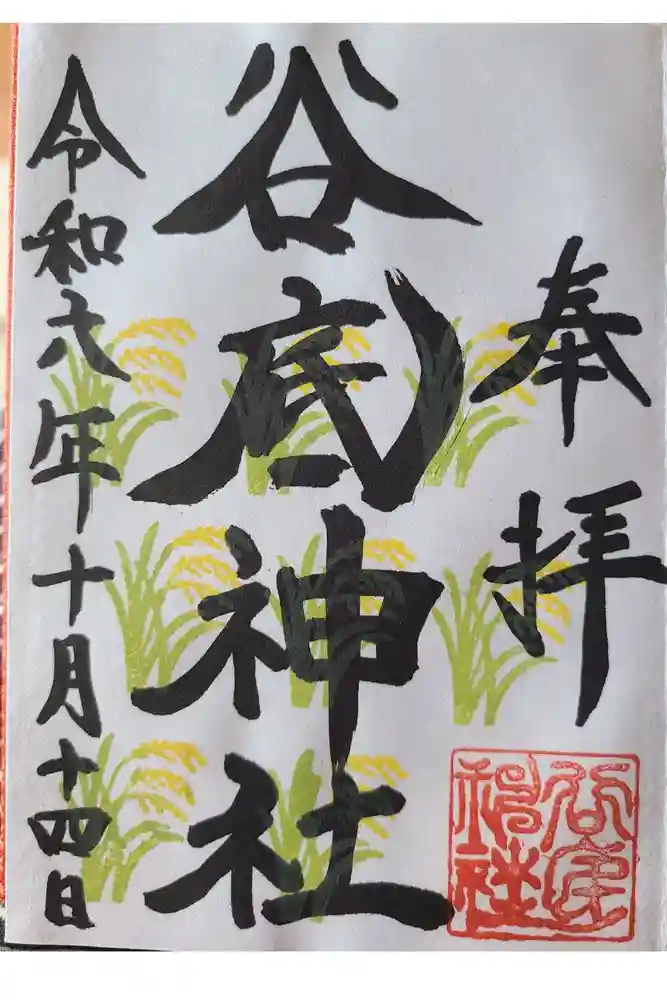 奉拝
谷底神社
令和六年十月十四日
谷底
神社